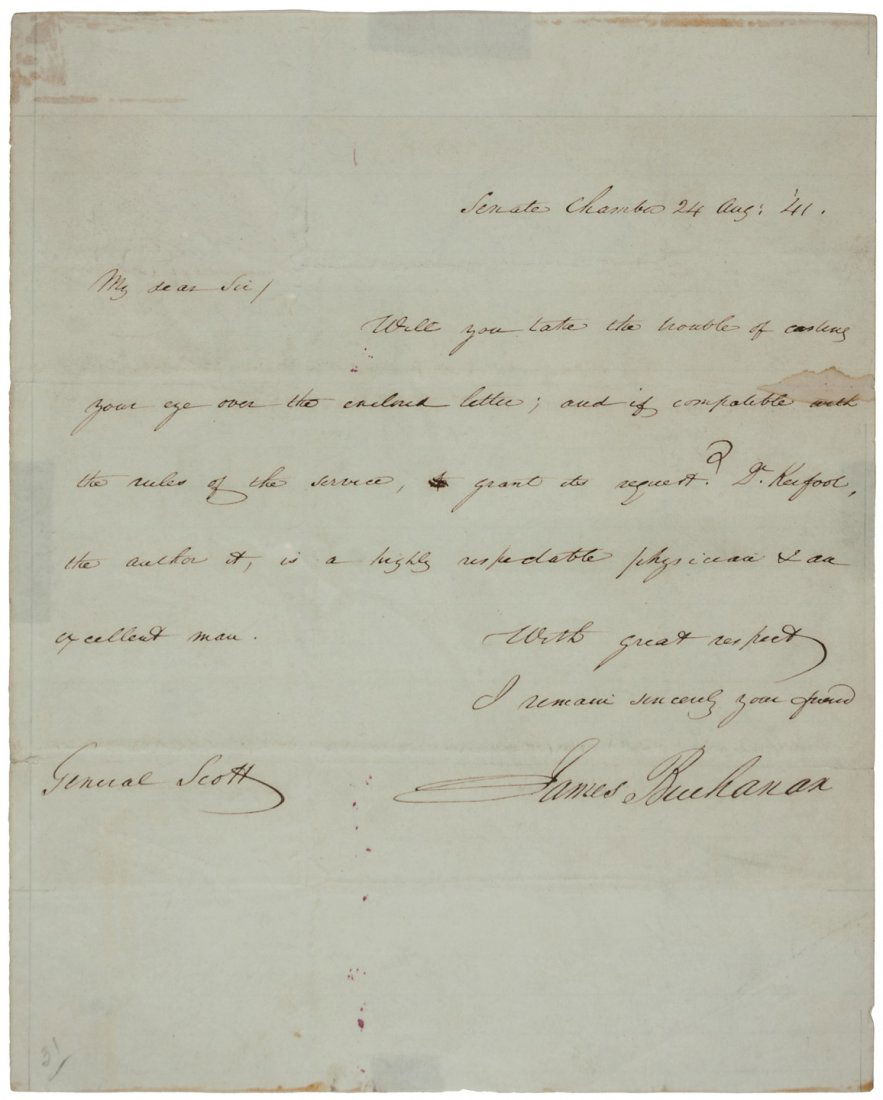 Senate Chamber 24 Aug: '41.
My dear Sir/
Will you take the trouble of casting
your eye over the enclosed letter; and if compatible with
the rules of the service, to grant its request? Dr. Kerfoot,
the author it, is a highly respectable physician & an
excellent man.
With great respect
I remain sincerely your friend
James Buchanan
General Scott
31